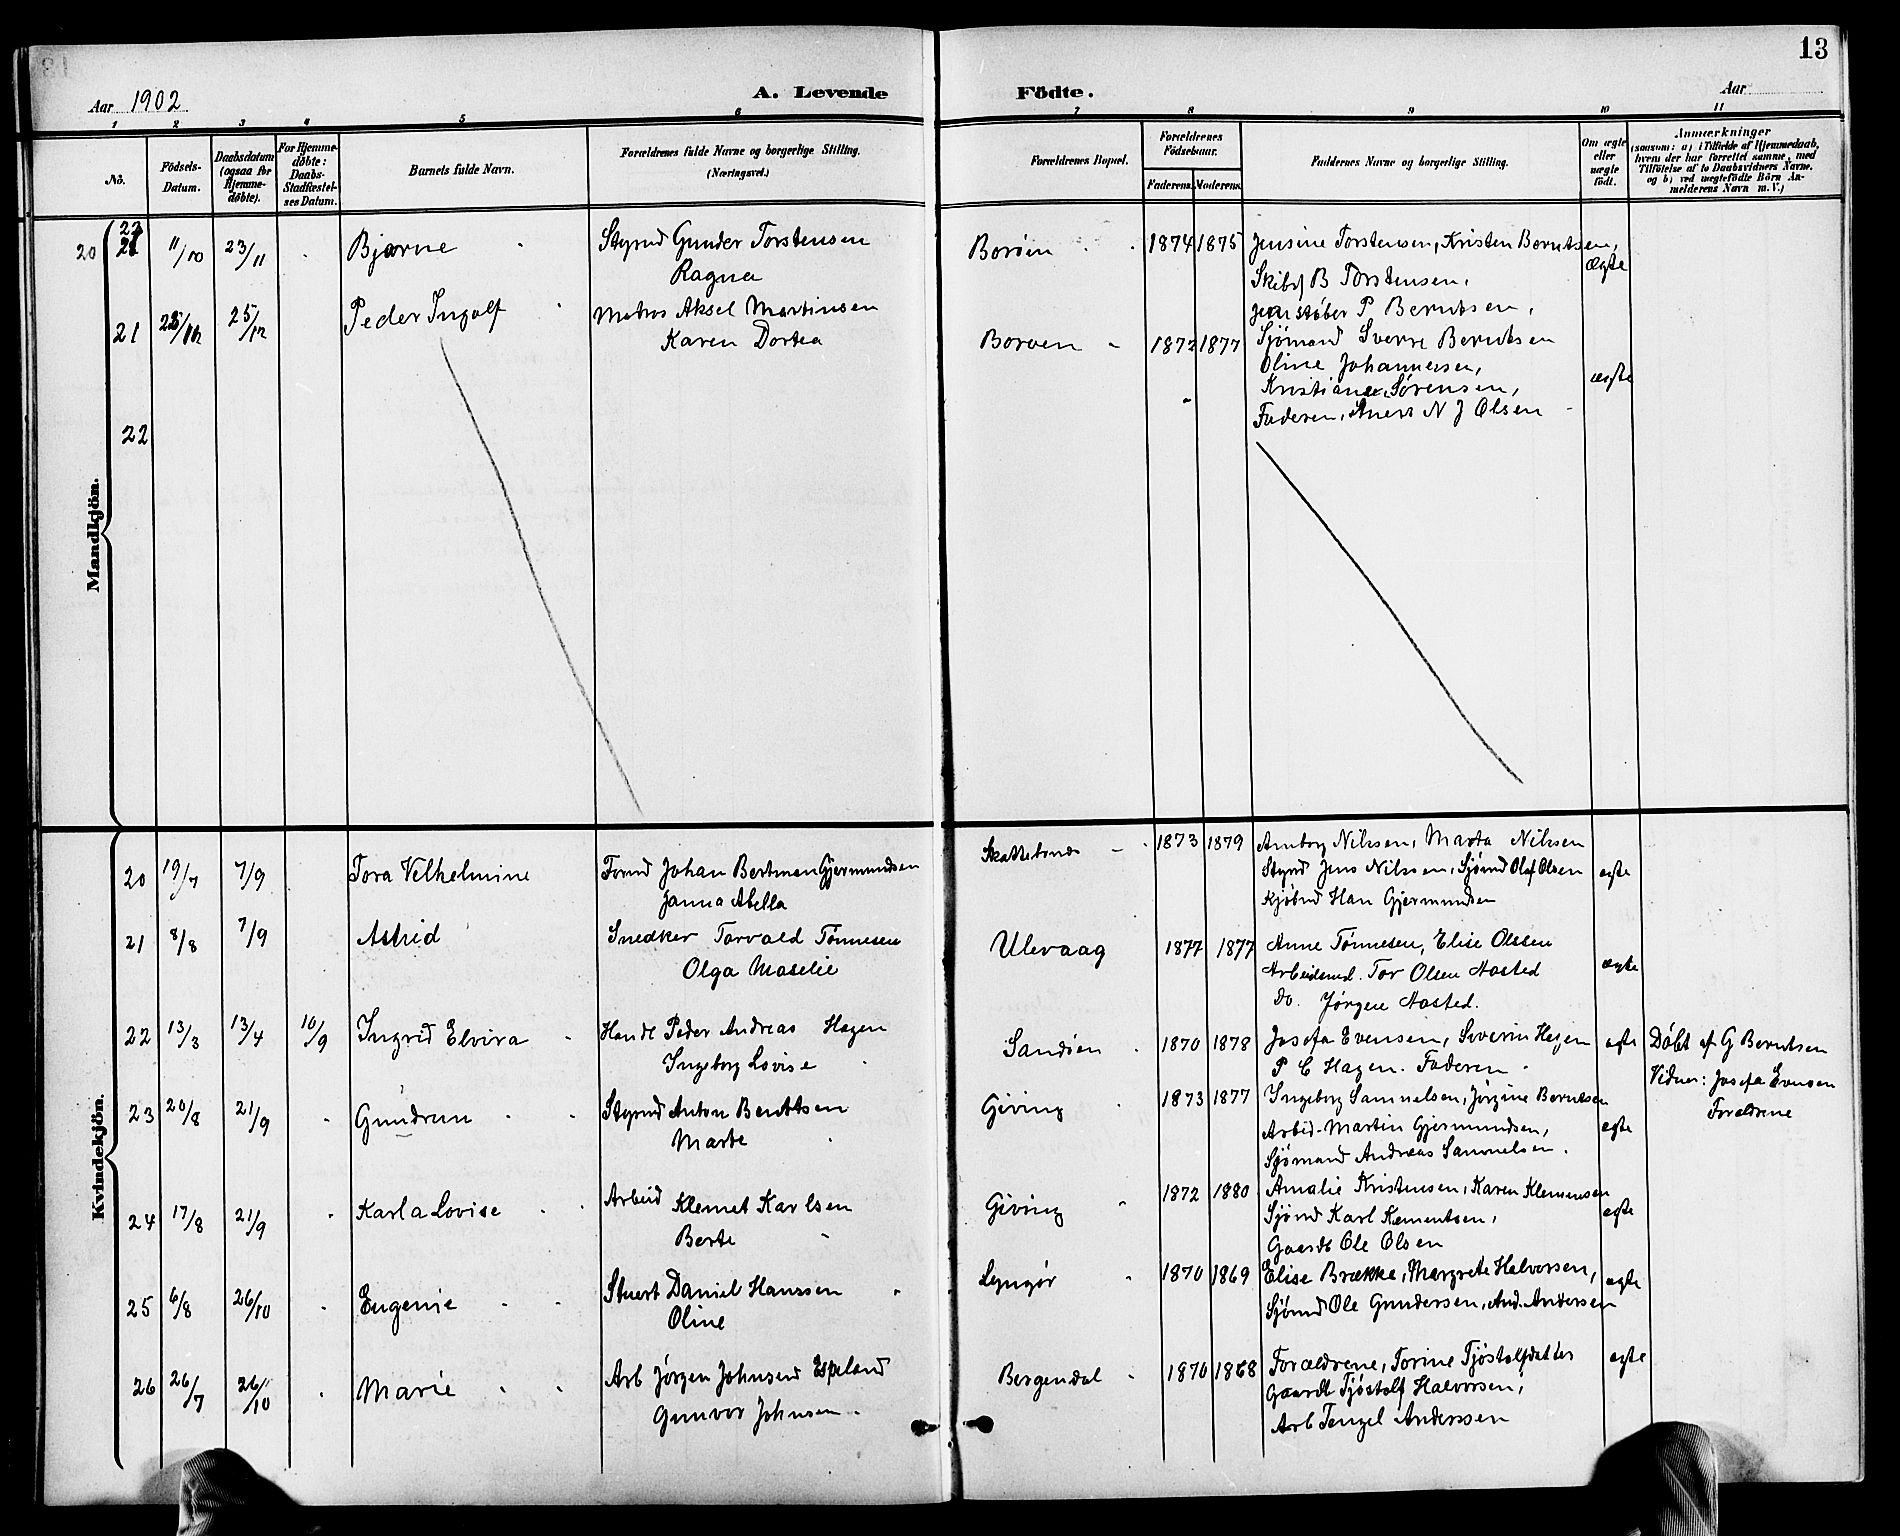 13
Aar 1902
A. Levende Födte.
Aar
1 2 3 4 5 6 7 8 9 10 11
No.
Födsels-Datum.
Daabsdatum (ogsaa for Hjemme-döbte).
For Hjemme-döbte: Daabs-Stadfæstel-ses Datum.
Barnets fulde Navn.
Forældrenes fulde Navne og borgerlige Stilling. (Næringsvei.)
Forældrenes Bopæl.
Forældrenes Födselsaar.
Faderens. Moderens.
Faddernes Navne og borgerlige Stilling.
Om ægte eller uægte födt.
Anmærkninger
(saasom: a) i Tilfælde af Hjemmedaab, hvem der har forrettet samme, med Tilföielse af to Daabsvidners Navne. og b) ved uægtefödte Börn An-melderens Navn m. V.)
Mandkjön.
20 11/10 23/11 Bjarne Styrmd Gunder Torstensen Borøen 1874 1875 Jensine Torstensen, Kristen Berntsen, ægte
Ragna Skibsf B Torstensen,
Jernstøber P Berntsen,
21 25/12 Peder Ingolf Matros Aksel Martinsen Boroen 1872 1877 Sjömand Sverre Berntsen ægte
Karen Dortea Oline Johannesen,
Kristiane Sørensen,
Faderen, N J Olsen
22
Kvindekjön.
20 19/7 7/9 Tora Vilhelmine Johan Bertman Gjermundsen 1873 1879 Amborg Nilssen, Marta Nilssen ægte
Janna Abella Styrmd Jens Nilssen, Sjömd Olaf Olsen
Kjöbmd Han Gjermundsen
21 8/8 7/9 Astrid Snedker Torvald Tönnesen Ulevaag 1877 1877 Anne Tönnesen, Elise Olssen ægte
Olga Maselie Arbeidsmd. Tor Olsen Aasted
Do. Jörgen Aasted.
22 13/3 13/4 10/9 Ingrid Elvira Handl Peder Andreas Hagen Sandöen 1870 1878 Josefa Evensen, Severin Hagen ægte Döbt af G Berntsen
Ingeborg Lovise P C Hagen. Faderen Vidner: Josefa Evensen
Forældrene
23 20/8 21/9 Gundrun Styrmd Anton Berntsen Giving 1873 1877 Ingeborg Samuelsen, Jörgine Berntsen ægte
Marte Arbeid. Martin Gjermundsen,
Sjömand Andreas Samuelsen.
24 17/8 21/9 Karla Lovise Arbeid Klemet Karlsen Giving 1872 1880 Amalie Kristensen, Karen Klemensen ægte
Berte Sjömd Karl Klementsen,
Gaardb Ole Olsen
25 6/8 26/10 Eugenie Stuert Daniel Hanssen Lyngør 1870 1869 Elise Brække, Margrete Halvorsen, ægte
Oline Sjömd Ole Gundersen, And. Andersen
26 26/7 26/10 Marie Arb Jörgen Johnsen Espeland Bergendal 1870 1868 Forældrene, Torine Tjöstolfdatter ægte
Gunvor Johnsen Gaardb Tjöstolf Halvorsen,
Arb Tengel Anderssen